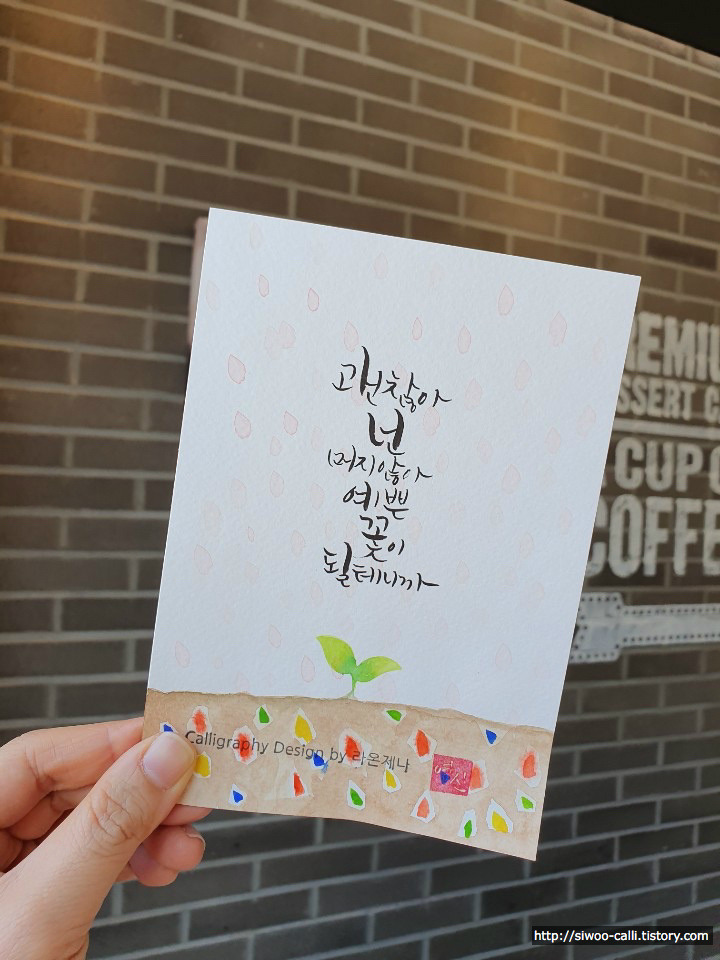 괜찮아
넌
머지않아
예쁜
꽃이
될테니까
Calligraphy Design by 라온제나
REMIU
SSERT C
CUP O
COFFE
http://siwoo-calli.tistory.com